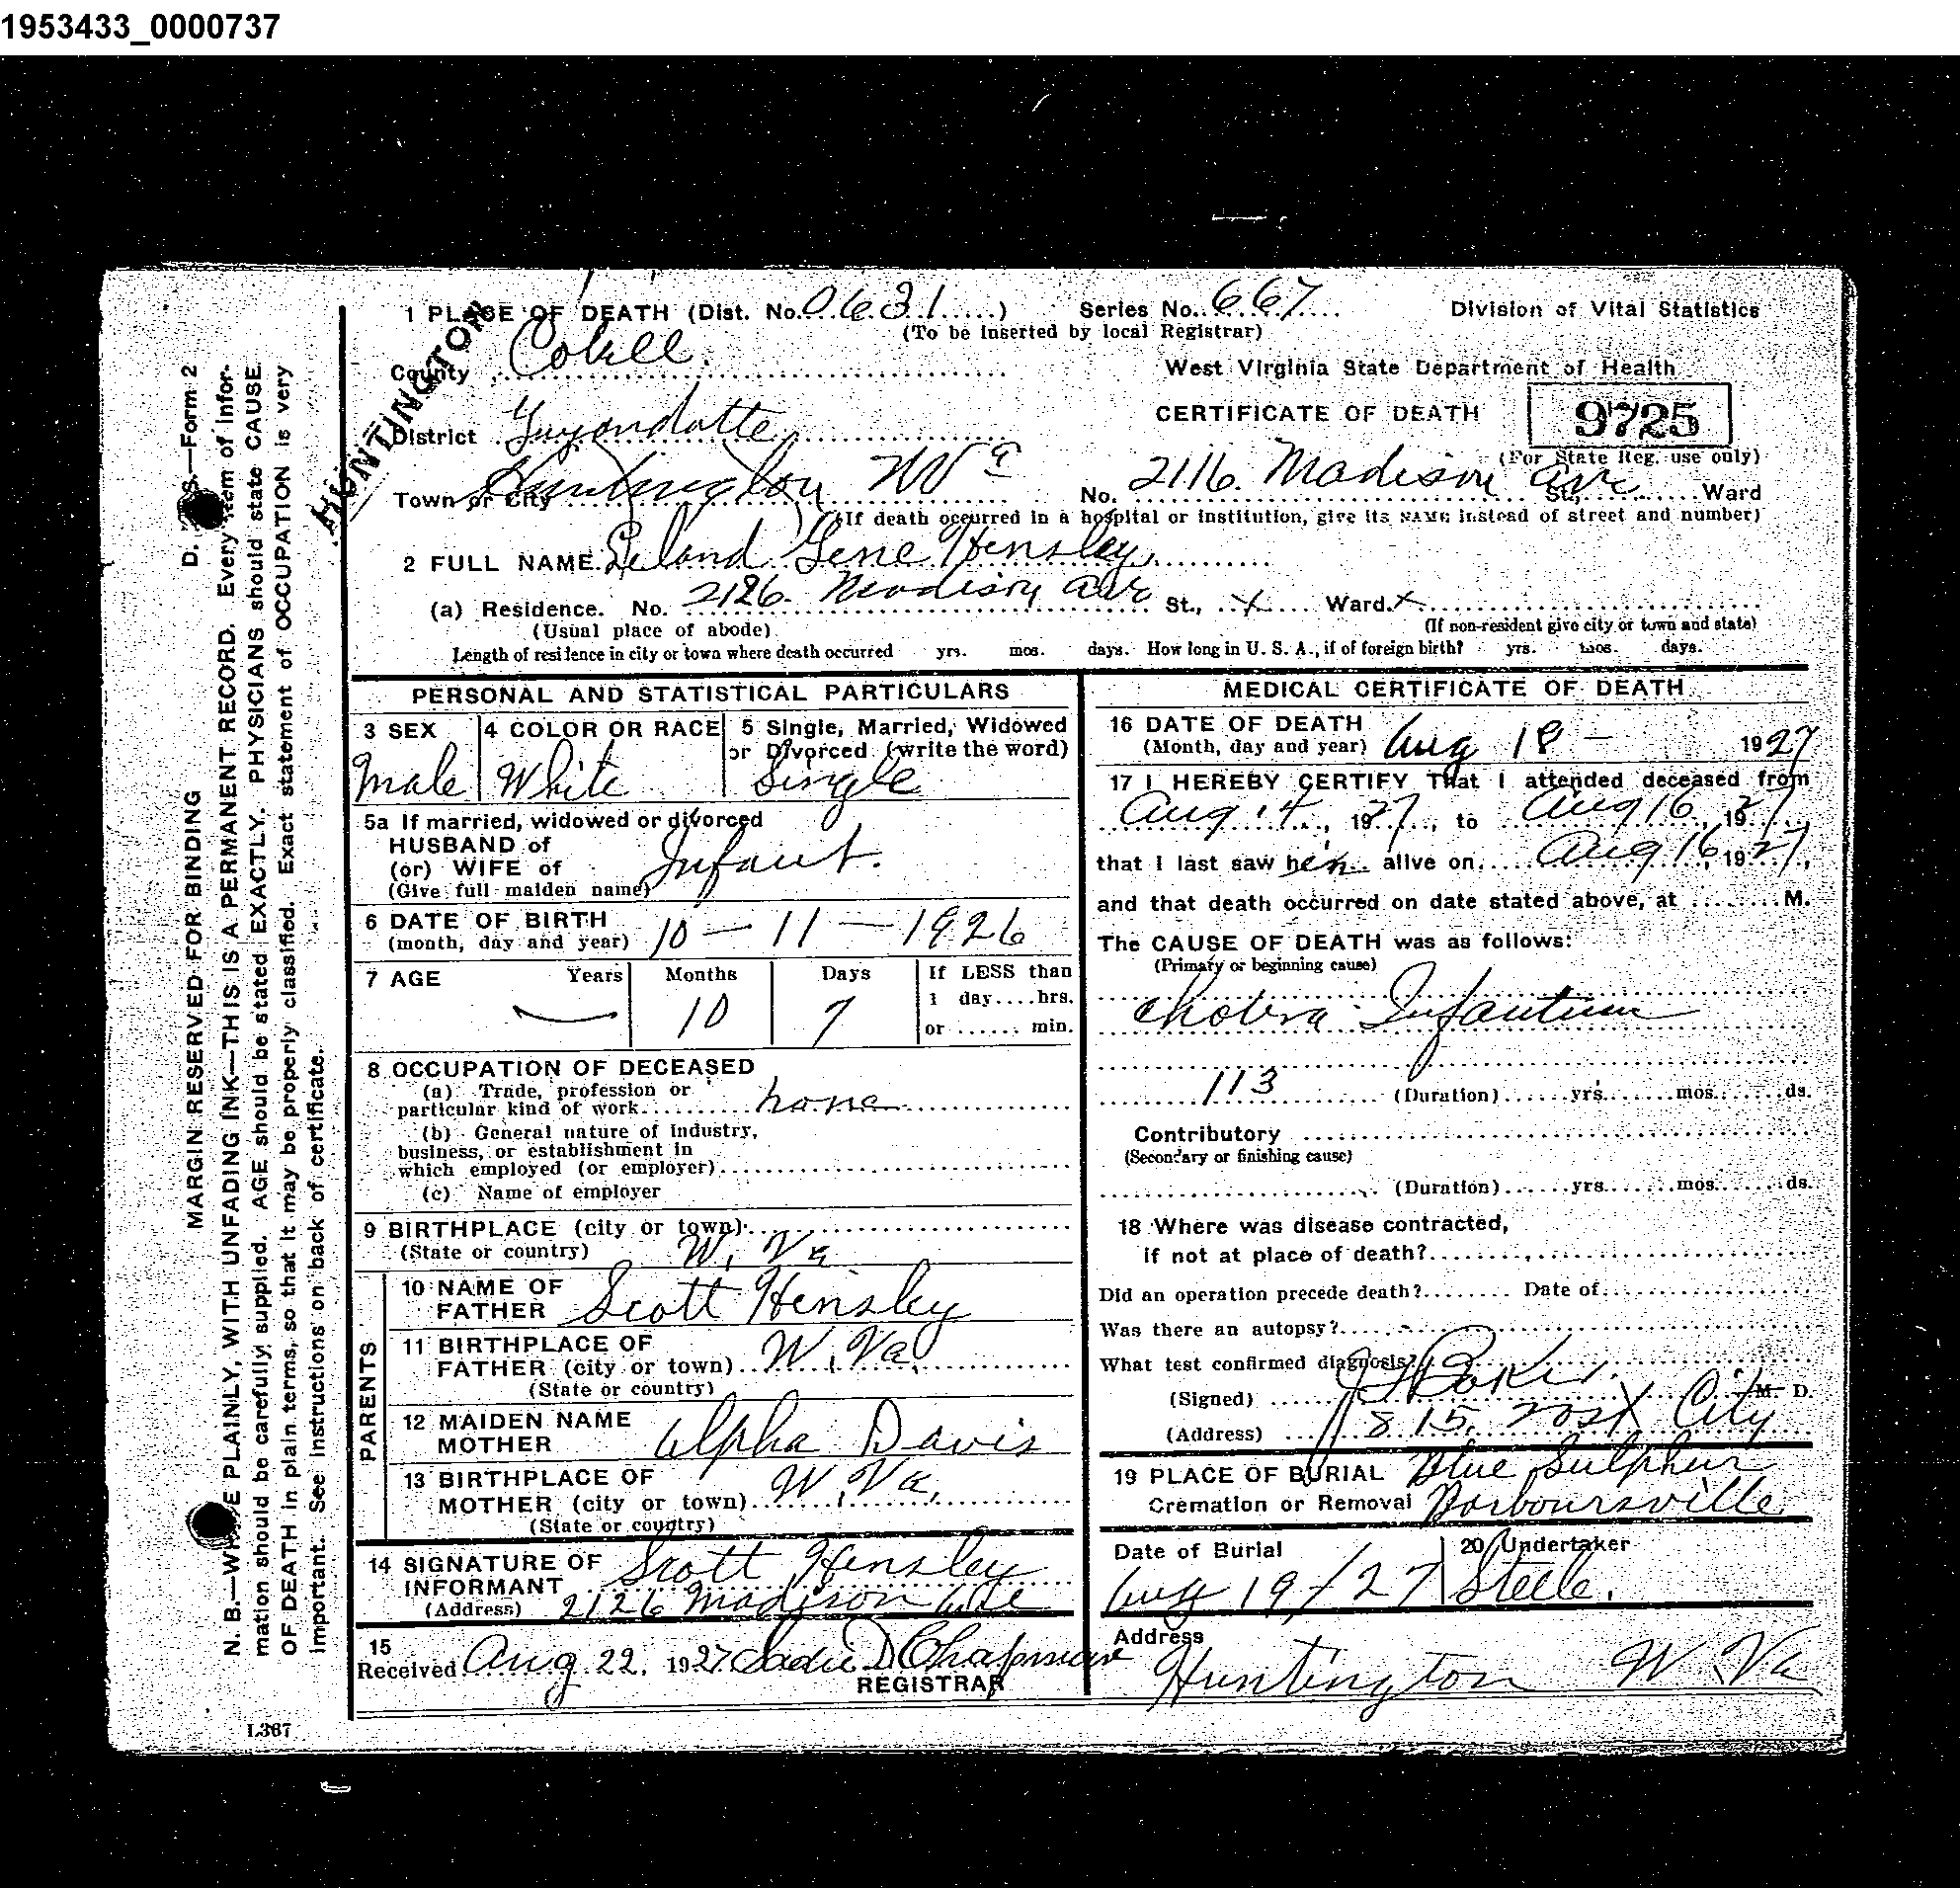 1953433_0000737
1 PLACE OF DEATH (Dist. No. 0631) Series No. 667 Division of Vital Statistics
(To be inserted by local Registrar)
HUNTINGTON
County Cabell. West Virginia State Department of Health
District Guyandotte CERTIFICATE OF DEATH 9725
(For State Reg. use only)
Town or City Huntington W Va No. 2116 Madison Ave St., Ward
(If death occurred in a hospital or institution, give its NAME instead of street and number)
2 FULL NAME Leland Gene Hensley
(a) Residence. No. 2126 Madison Ave St., X Ward. X
(Usual place of abode) (If non-resident give city or town and state)
Length of residence in city or town where death occurred yrs. mos. days. How long in U. S. A., if of foreign birth? yrs. mos. days.
PERSONAL AND STATISTICAL PARTICULARS
3 SEX 4 COLOR OR RACE 5 Single, Married, Widowed
or Divorced (write the word)
Male White Single
5a If married, widowed or divorced
HUSBAND of
(or) WIFE of Infant.
(Give full maiden name)
6 DATE OF BIRTH 10 — 11 — 1926
(month, day and year)
7 AGE Years Months Days If LESS than
1 day....hrs.
— 10 7
or ...... min.
8 OCCUPATION OF DECEASED
(a) Trade, profession or
particular kind of work none
(b) General nature of Industry,
business, or establishment in
which employed (or employer)
(c) Name of employer
9 BIRTHPLACE (city or town)
(State or country) W. Va
PARENTS
10 NAME OF
FATHER Scott Hensley
11 BIRTHPLACE OF
FATHER (city or town) W. Va
(State or country)
12 MAIDEN NAME
MOTHER Alpha Davis
13 BIRTHPLACE OF
MOTHER (city or town) W. Va.
(State or country)
14 SIGNATURE OF
INFORMANT Scott Hensley
(Address) 2126 Madison Ave
15
Received Aug 22, 1927 Sadie D Chapman
REGISTRAR
MEDICAL CERTIFICATE OF DEATH
16 DATE OF DEATH
(Month, day and year) Aug 18 — 1927
17 I HEREBY CERTIFY That I attended deceased from
Aug 14, 1927, to Aug 16, 1927
that I last saw him alive on Aug 16, 1927,
and that death occurred on date stated above, at ........M.
The CAUSE OF DEATH was as follows:
(Primary or beginning cause)
Cholera Infantum
113 (Duration) yrs. mos. ds.
Contributory
(Secondary or finishing cause)
(Duration) yrs. mos. ds.
18 Where was disease contracted,
if not at place of death?
Did an operation precede death? Date of
Was there an autopsy?
What test confirmed diagnosis?
(Signed) Baker. M. D.
(Address) 815 City
19 PLACE OF BURIAL Blue Sulphur
Cremation or Removal Barboursville
Date of Burial 20 Undertaker
Aug 19/27 Steele.
Address
Huntington W. Va
D. S.—Form 2
MARGIN RESERVED FOR BINDING
N. B.—WRITE PLAINLY, WITH UNFADING INK—THIS IS A PERMANENT RECORD. Every item of infor-
mation should be carefully supplied. AGE should be stated EXACTLY. PHYSICIANS should state CAUSE
OF DEATH in plain terms, so that it may be properly classified. Exact statement of OCCUPATION is very
important. See instructions on back of certificate.
L367